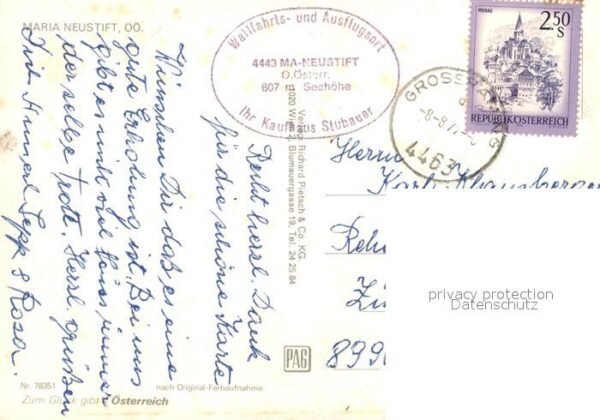 MARIA NEUSTIFT, OÖ.
Wallfahrts- und Ausflugsort
4443 MA-NEUSTIFT
O.Österr.
607 m Seehöhe
Ihr Kaufhaus Stubauer
MURAU
2.50
S
REPUBLIK ÖSTERREICH
GROSSRAMING
-8-9.77-
4463
Recht herzl. Dank
für die schöne Karte
Wünschen Dir daß es eine
gute Erholung ist. Bei uns
gibt es nicht viel Neues immer
der selbe Trott. Herzl. Grüßen
Dich Sepp & Rosa.
Verlag Richard Pietsch & Co. KG.
1020 Wien 2, Blumauergasse 19, Tel. 24 25 84
Herrn
Karl
Reh
899
PAG
privacy protection
Datenschutz
Nr. 78351
nach Original-Farbaufnahme
Zum Glück gibt's Österreich